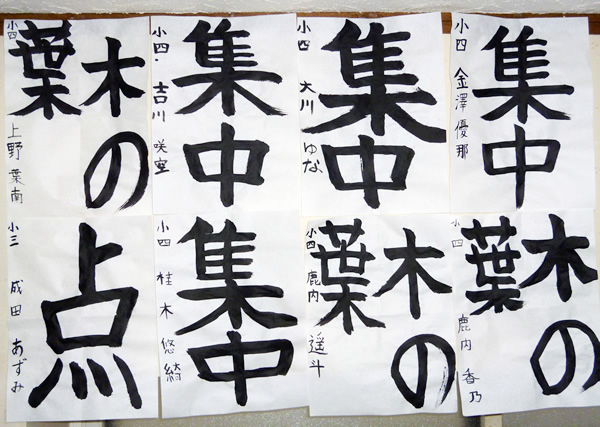 木の
葉
小四 上野 葉南
集中
小四 吉川 咲空
集中
小四 大川 ゆな
集中
小四 金澤 優那
点
小三 成田 あずみ
集中
小四 桂木 悠綺
木の
葉
小四 鹿内 遥斗
木の
葉
小四 鹿内 香乃